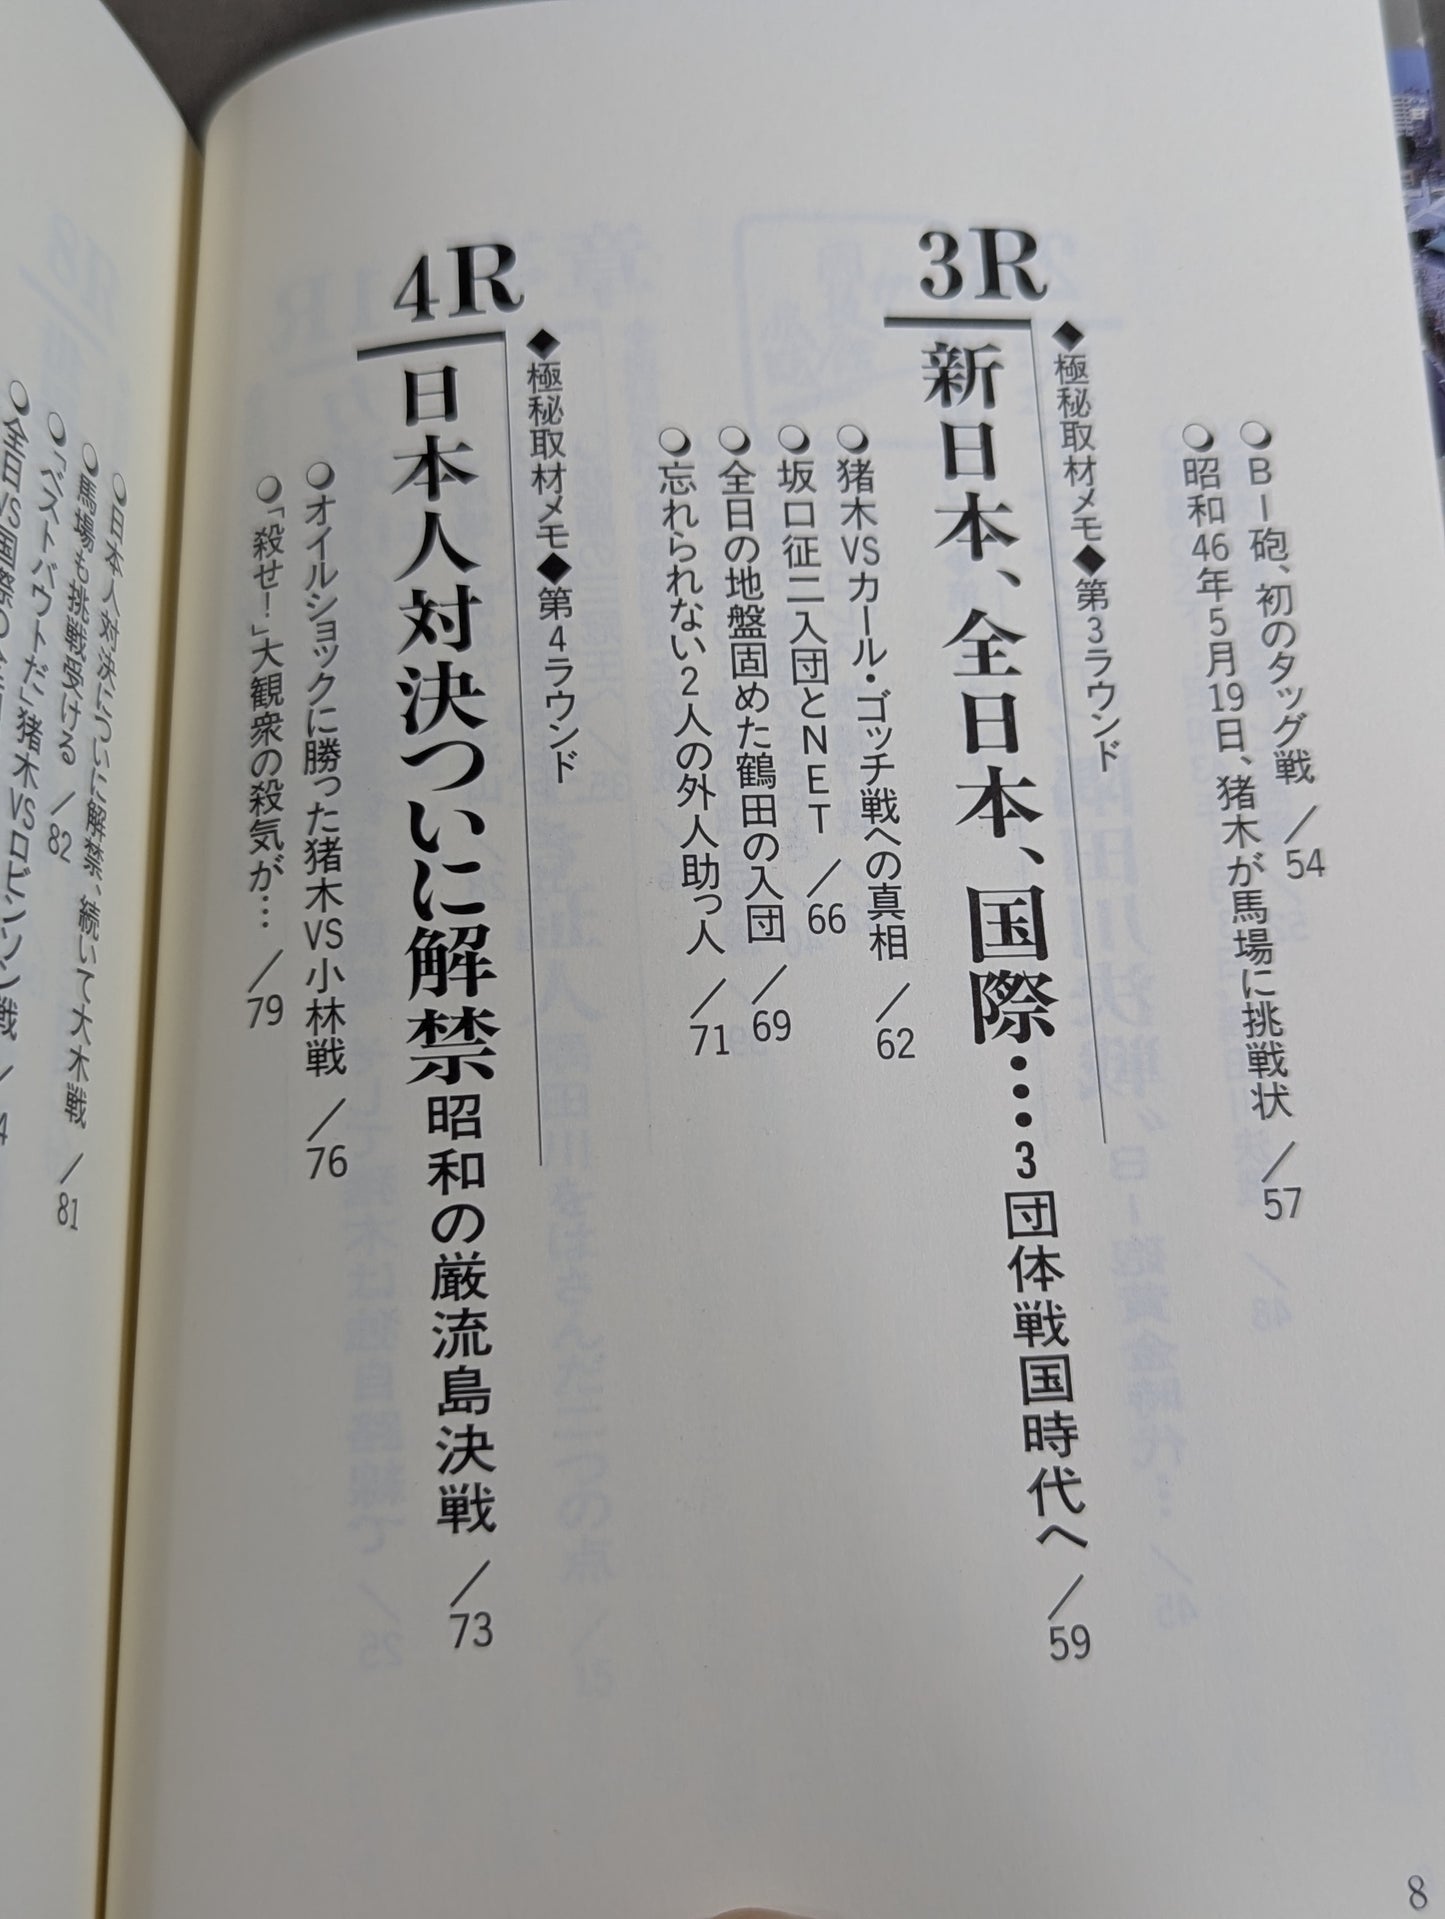 ○BI砲、初のタッグ戦 ／54
○昭和46年5月19日、猪木が馬場に挑戦状 ／57
◆極秘取材メモ◆第3ラウンド
3R 新日本、全日本、国際…3団体戦国時代へ ／59
○猪木VSカール・ゴッチ戦への真相 ／62
○坂口征二入団とNET ／66
○全日の地盤固めた鶴田の入団 ／69
○忘れられない2人の外人助っ人 ／71
◆極秘取材メモ◆第4ラウンド
4R 日本人対決ついに解禁 昭和の厳流島決戦 ／73
○オイルショックに勝った猪木VS小林戦 ／76
○「殺せ！」大観衆の殺気が… ／79
8
○日本人対決についに解禁、続いて大木戦 ／81
○馬場も挑戦受ける ／82
○「ベストバウトだ」猪木VSロビンソン戦 ／
○全日VS国際の